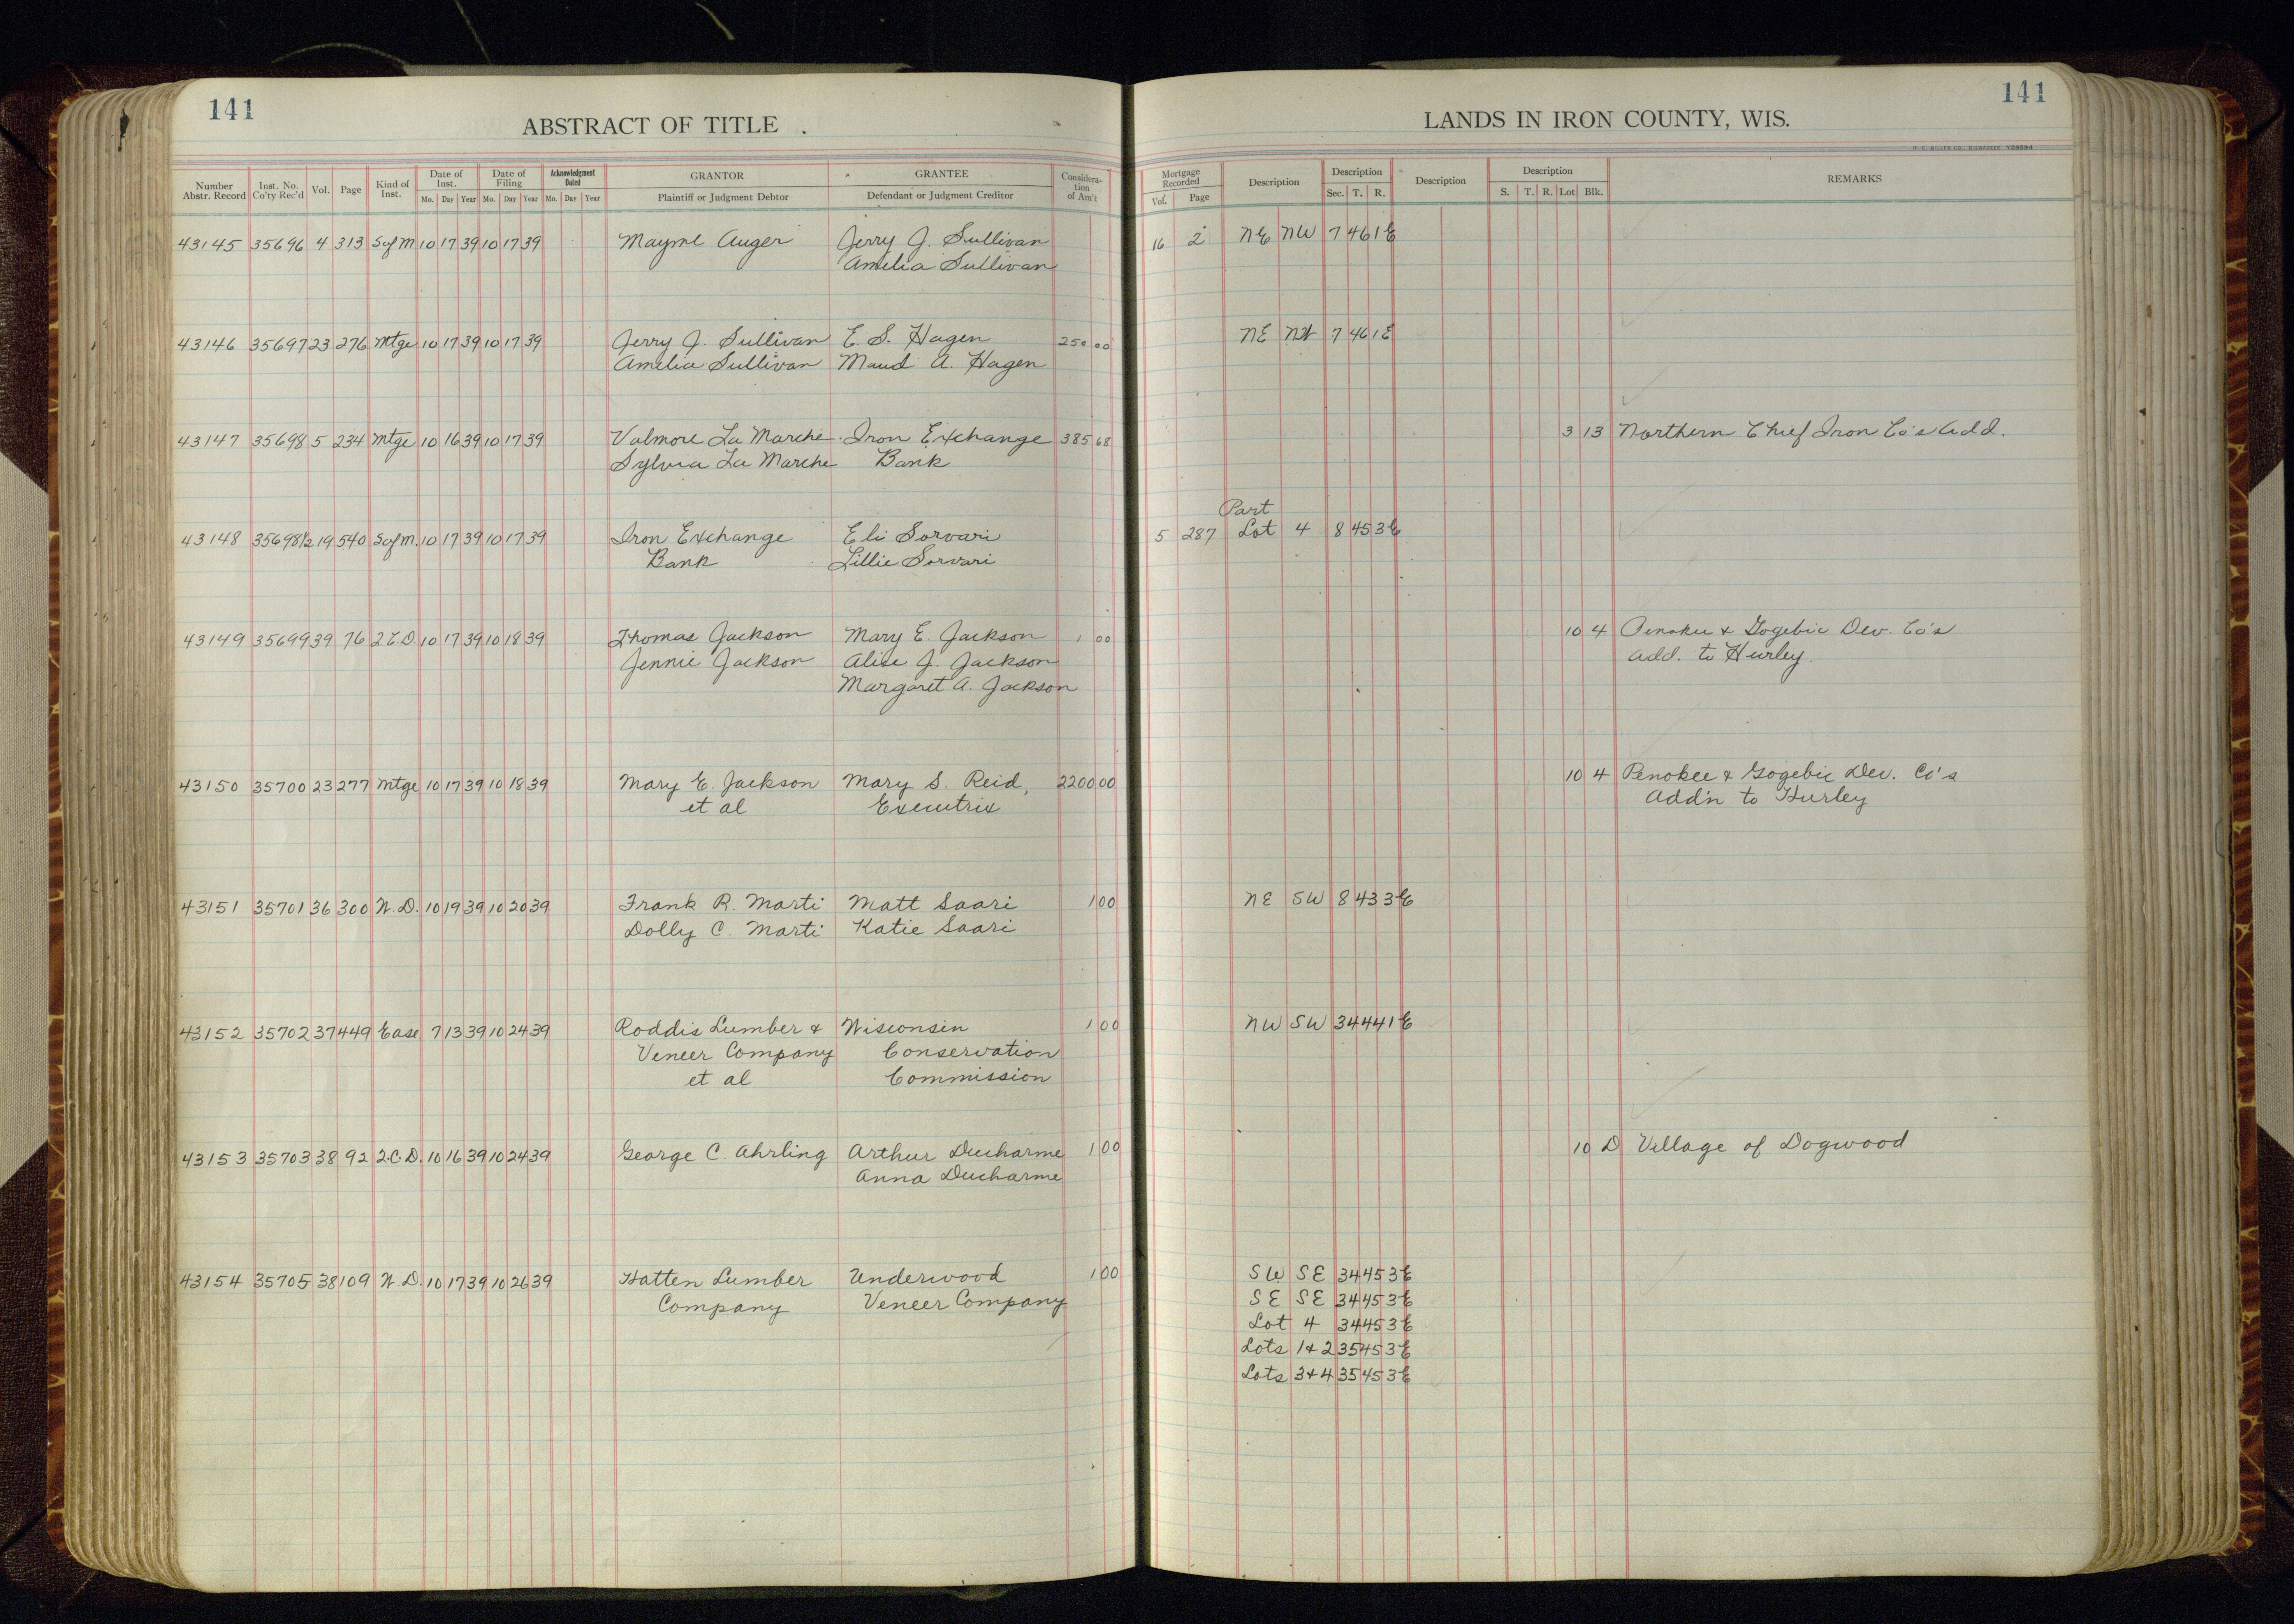 141
ABSTRACT OF TITLE .
Number Abstr. Record Inst. No. Co'ty Rec'd Vol. Page Kind of Inst. Date of Inst. Mo. Day Year Date of Filing Mo. Day Year Acknowledgment Dated Mo. Day Year GRANTOR Plaintiff or Judgment Debtor GRANTEE Defendant or Judgment Creditor Considera-tion of Am't
43145 35696 4 313 S of M 10 17 39 10 17 39 Mayme Auger Jerry J. Sullivan
Amelia Sullivan
43146 35697 23 276 Mtge 10 17 39 10 17 39 Jerry J. Sullivan E. S. Hagen 250 00
Amelia Sullivan Maud A. Hagen
43147 35698 5 234 Mtge 10 16 39 10 17 39 Valmore La Marche Iron Exchange 385 68
Sylvia La Marche Bank
43148 35698½ 19 540 S of M. 10 17 39 10 17 39 Iron Exchange Eli Sorvari
Bank Lillie Sorvari
43149 35699 39 76 2.C.D. 10 17 39 10 18 39 Thomas Jackson Mary E. Jackson 1 00
Jennie Jackson Alice J. Jackson
Margaret A. Jackson
43150 35700 23 277 Mtge 10 17 39 10 18 39 Mary E. Jackson Mary S. Reid, 2200 00
et al Executrix
43151 35701 36 300 W.D. 10 19 39 10 20 39 Frank R. Marti Matt Saari 1 00
Dolly C. Marti Katie Saari
43152 35702 37 449 Ease. 7 13 39 10 24 39 Roddis Lumber & Wisconsin 1 00
Veneer Company Conservation
et al Commission
43153 35703 38 92 2.C.D. 10 16 39 10 24 39 George C. Ahrling Arthur Ducharme 1 00
Anna Ducharme
43154 35705 38 109 W.D. 10 17 39 10 26 39 Hatten Lumber Underwood 1 00
Company Veneer Company
141
LANDS IN IRON COUNTY, WIS.
Mortgage Recorded Vol. Page Description Description Sec. T. R. Description Description S. T. R. Lot Blk. REMARKS
16 2 NE NW 7 46 1E
NE NW 7 46 1E
3 13 Northern Chief Iron Co's Add.
Part
5 287 Lot 4 8 45 3E
10 4 Penokee & Gogebic Dev. Co's
Add. to Hurley.
10 4 Penokee & Gogebic Dev. Co's
Add'n to Hurley
NE SW 8 43 3E
NW SW 34 44 1E
10 D Village of Dogwood
SW SE 34 45 3E
SE SE 34 45 3E
Lot 4 34 45 3E
Lots 1+2 35 45 3E
Lots 3+4 35 45 3E